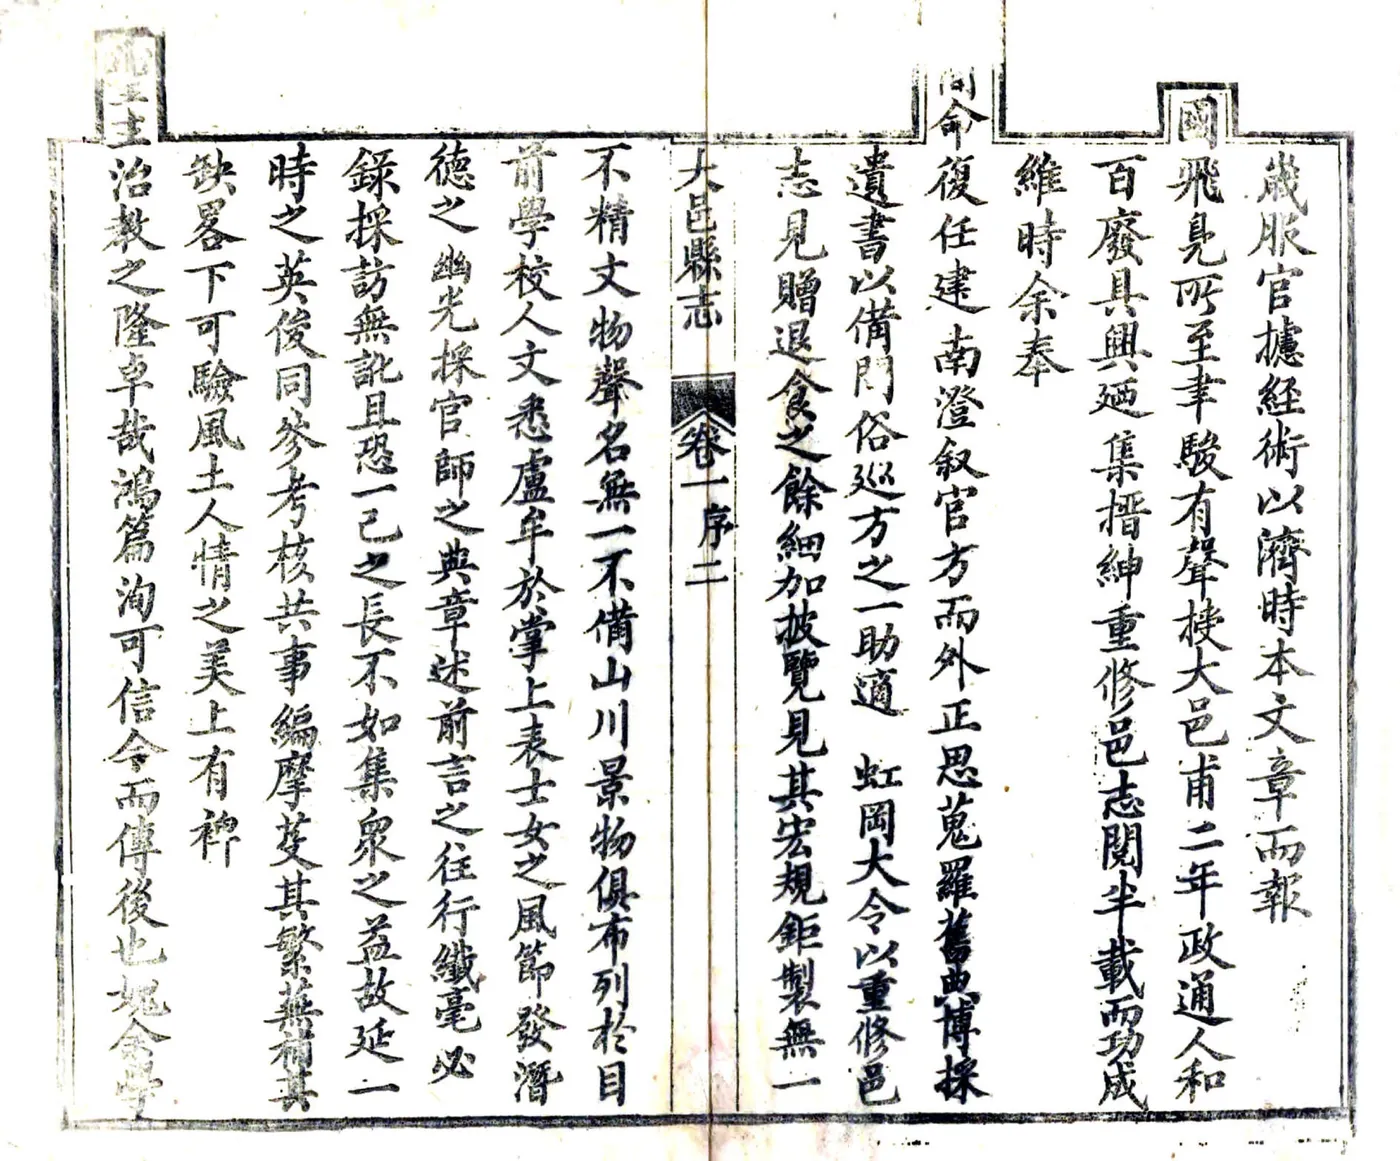 歲服官攄經術以濟時本文章而報
國飛鳧所至聿駿有聲捿大邑甫二年政通人和
百廢具興廼集搢紳重修邑志閱半載而功成
維時余奉
簡命復任建南澄叙官方而外正思蒐羅舊典博採
遺書以備問俗巡方之一助適 虹岡大令以重修邑
志見贈退食之餘細加披覽見其宏規鉅製無一
大邑縣志 卷一序 二
不精文物聲名無一不備山川景物俱布列於目
前學校人文悉盧牟於掌上表士女之風節發潛
德之幽光採官師之典章述前言之往行纖毫必
錄採訪無訛且恐一己之長不如集衆之益故延一
時之英俊同參考核共事編摩芟其繁蕪補其
缺畧下可驗風土人情之美上有裨
聖主治教之隆卓哉鴻篇洵可信今而傳後也媿余學